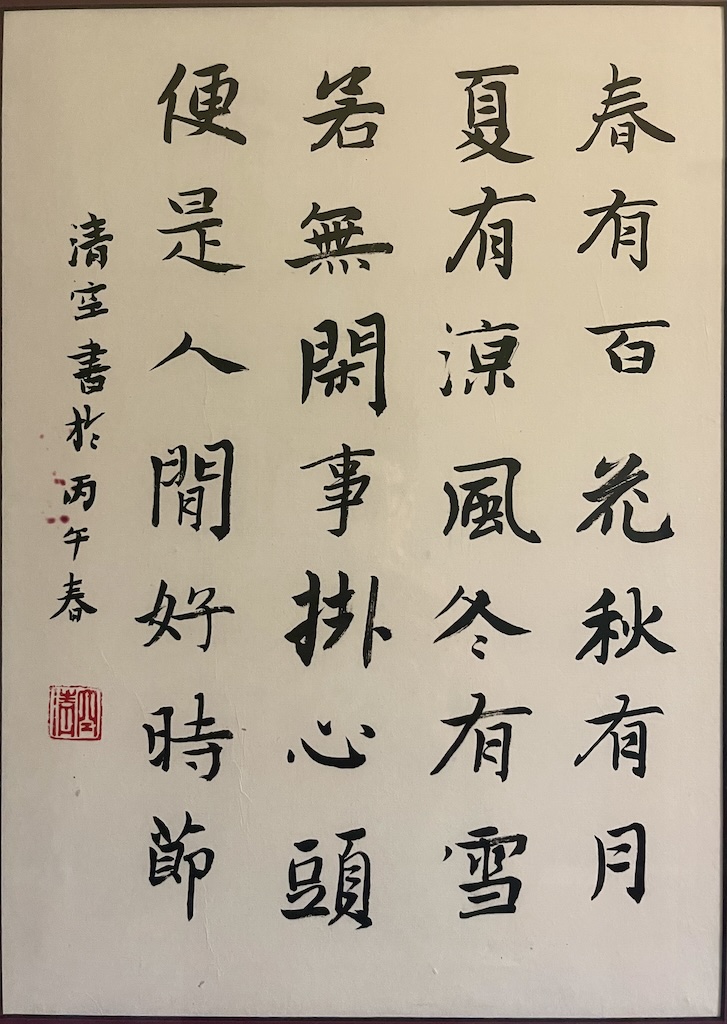 春有百花秋有月
夏有涼風冬有雪
若無閑事掛心頭
便是人間好時節
清空書於丙午春
清空